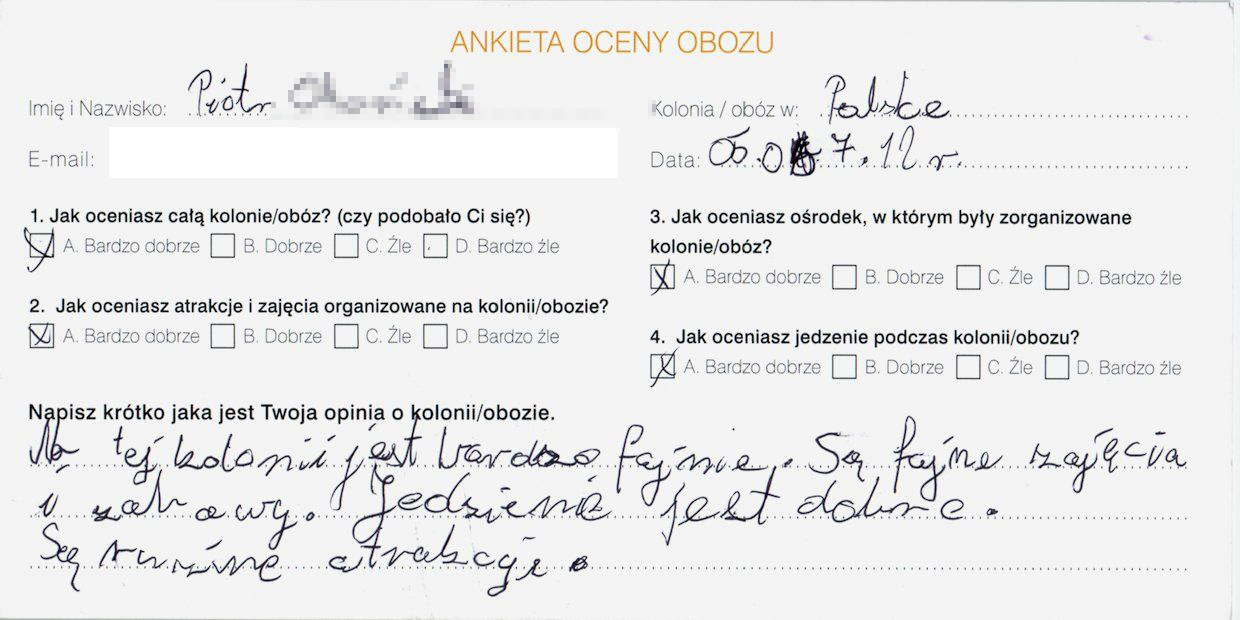 ANKIETA OCENY OBOZU
Imię i Nazwisko: Piotr
Kolonia / obóz w: Polsce
E-mail:
Data: 05.07.12 r.
1. Jak oceniasz całą kolonie/obóz? (czy podobało Ci się?)
A. Bardzo dobrze B. Dobrze C. Źle D. Bardzo źle
2. Jak oceniasz atrakcje i zajęcia organizowane na kolonii/obozie?
A. Bardzo dobrze B. Dobrze C. Źle D. Bardzo źle
3. Jak oceniasz ośrodek, w którym były zorganizowane
kolonie/obóz?
A. Bardzo dobrze B. Dobrze C. Źle D. Bardzo źle
4. Jak oceniasz jedzenie podczas kolonii/obozu?
A. Bardzo dobrze B. Dobrze C. Źle D. Bardzo źle
Napisz krótko jaka jest Twoja opinia o kolonii/obozie.
Na tej kolonii jest bardzo fajnie. Są fajne zajęcia
i zabawy. Jedzienie jest dobre.
Są rużne atrakcji.